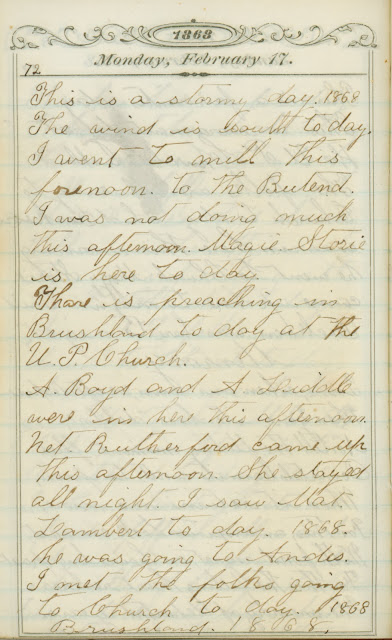 1868
Monday, February 17.
72
This is a stormy day. 1868
The wind is South to day.
I went to mill this
forenoon. to the Butend.
I was not doing much
this afternoon. Magie Storie
is here to day.
Thare is preaching in
Brushland to day at the
U. P. Church.
A. Boyd and A. Liddle
were in here this afternoon.
Net. Rutherford came up
this afternoon. She stayed
all night. I saw Mat.
Lambert to day. 1868.
he was going to Andes.
I met the folks going
to Church to day. 1868
Brushland. 1868.